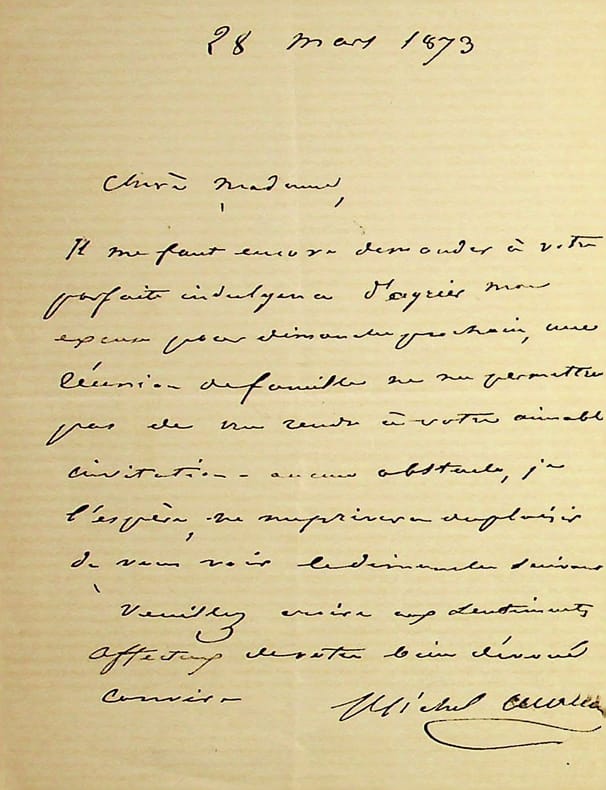 28 mars 1873
Chère Madame,
Il me faut encore demander à votre
parfaite indulgence d'agréer mon
excuse pour dimanche prochain, une
réunion de famille ne me permettra
pas de me rendre à votre aimable
invitation - aucun obstacle, je
l'espère, ne me privera du plaisir
de vous voir le dimanche suivant
Veuillez croire aux sentiments
affectueux de votre bien dévoué
Michel